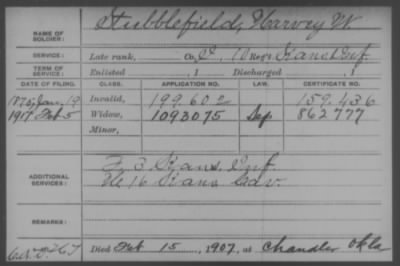 NAME OF SOLDIER: Stubblefield, Harvey W
SERVICE: Late rank, Co. C, 10 Reg't Kans Inf.
TERM OF SERVICE: Enlisted , 1 Discharged , 1
DATE OF FILING. CLASS. APPLICATION NO. LAW. CERTIFICATE NO.
1875, Jan. 19 Invalid, 199.602 159.436
1917 Feb 5 Widow, 1093075 862777
Minor,
ADDITIONAL SERVICES: F. 3 Kans. Inf.
16 Kans Cav.
REMARKS:
Died Feb 15, 1907, at Chandler Okla